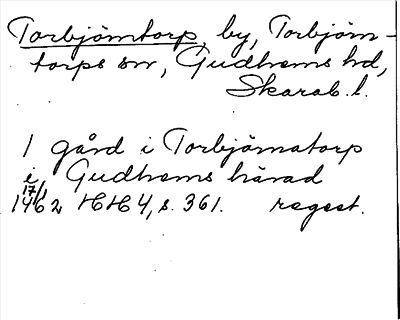 Torbjörntorp, by, Torbjörn-
torps sn, Gudhems hd,
Skarab. l.
1 gård i Torbjörnatorp
i Gudhems härad
17/1
1462 HH 4, s. 361. regest.